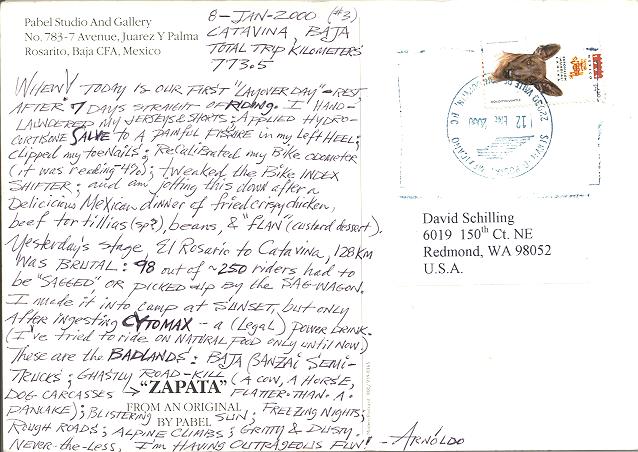 Pabel Studio And Gallery
No. 783-7 Avenue, Juarez Y Palma
Rosarito, Baja CFA, Mexico
8-JAN-2000 (#3)
CATAVINA, BAJA
TOTAL TRIP KILOMETERS
773.5
WHEW! TODAY IS OUR FIRST "LAYOVER DAY" - REST
AFTER 7 DAYS STRAIGHT OF RIDING. I HAND-
LAUNDERED my JERSEYS & SHORTS; APPLIED HYDRO-
CORTISONE SALVE TO A PAINFUL FISSURE in my Left HEEL;
Clipped my toeNails; Recalibrated my Bike odometer
(it was reading -4%); tweaked the BIKE INDEX
SHIFTER; and am jotting this down after a
Delicious Mexican dinner of fried crispy chicken,
beef tortillias (sp?), beans, & "flan" (custard dessert).
Yesterday's stage, El Rosario to Catavina, 128 KM
WAS BRUTAL: 98 out of ~250 riders had to
be "SAGGED" or picked up by the SAG-WAGON.
I made it into camp at SUNSET, but only
After ingesting CYTOMAX - a (legal) power drink.
(I've tried to ride on NATURAL FOOD only until Now)
These are the BADLANDS: BAJA (BANZAI SEMI-
TRUCKS; GHASTLY ROAD-KILL (A COW, A HORSE,
DOG CARCASSES → FLATTER-THAN-A-
"ZAPATA"
PANCAKE); BLISTERING SUN; FREEZING NIGHTS;
FROM AN ORIGINAL
BY PABEL
ROUGH ROADS; ALPINE CLIMBS; GRITTY & DUSTY.
NEVER-THE-LESS, I'm HAVING OUTRAGEOUS FUN! - ARNOLDO
12 ENE 2000
David Schilling
6019 150th Ct. NE
Redmond, WA 98052
U.S.A.